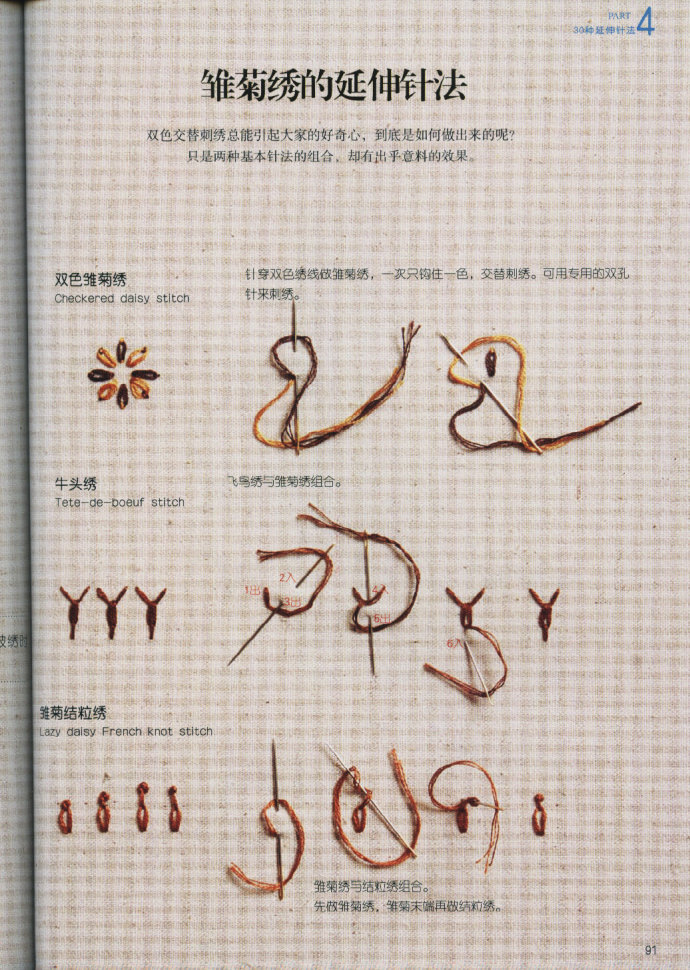 PART 4
30种延伸针法
雏菊绣的延伸针法
双色交替刺绣总能引起大家的好奇心，到底是如何做出来的呢？
只是两种基本针法的组合，却有出乎意料的效果。
双色雏菊绣
Checkered daisy stitch
针穿双色绣线做雏菊绣，一次只钩住一色，交替刺绣。可用专用的双孔
针来刺绣。
牛头绣
Tete-de-boeuf stitch
飞鸟绣与雏菊绣组合。
1出
2入
3出
4入
5出
6入
雏菊结粒绣
Lazy daisy French knot stitch
雏菊绣与结粒绣组合。
先做雏菊绣，雏菊末端再做结粒绣。
91